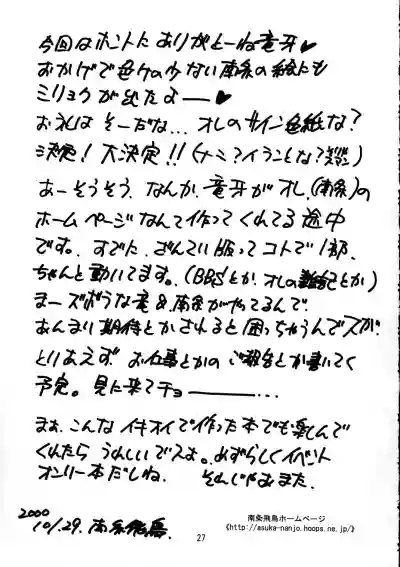 今回はホントにありがとーね竜牙♥
おかげで色ケの少ない南条の絵にも
ミリョクが出たよ——♥
お礼は そーだな... オレのサイン色紙な?
決定! 大決定!! (ナニ?イランとな?
あーそうそう、なんか、竜牙がオレ(南条)の
ホームページなんて作ってくれてる途中
です。すでに、ざんてい版ってコトで1部、
ちゃんと動いてます。(BBSとか、オレの とか)
まーズボラな竜&南条がやってるんで
あんまり期待とかされると困っちゃうんでスが、
とりあえず お仕事とかの ご報告とか書いてく
予定。見に来てチョ————...
まぁ、こんなイキオイで作った本でも楽しんで
くれたら うれしいでスよ。めずらしくイベント
オンリー本だしね。 それじゃぁまた。
2000
10/.29. 南条飛鳥.
27
南条飛鳥ホームページ
《http://asuka-nanjo.hoops.ne.jp/》